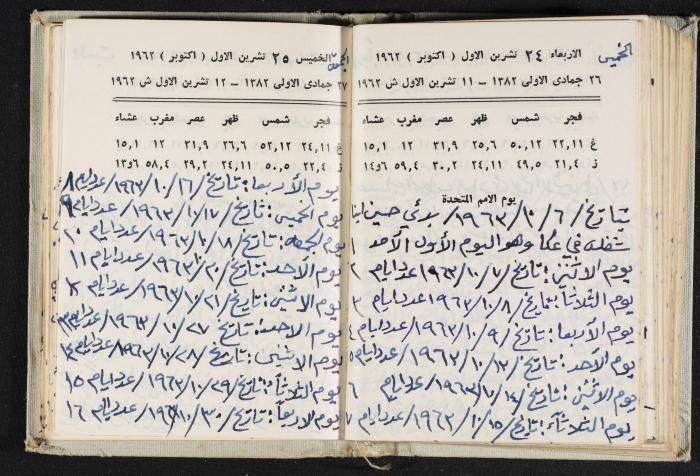 الخميس
الاربعاء ٢٤ تشرين الاول ( اكتوبر ) ١٩٦٢
٢٦ جمادى الاولى ١٣٨٢ – ١١ تشرين الاول ش ١٩٦٢
فجر شمس ظهر عصر مغرب عشاء
غ ٢٢,١١ ٥٠,١٢ ٢٥,٦ ٣١,٩ ١٢ ١٥,١
ز ٢١,٤ ٤٩,٥ ٢٤,١١ ٣٠,٢ ٥٩,٤ ١٤و٦
يوم الامم المتحدة
بتاريخ / ٦ / ١٠ / ١٩٦٣ / بدئي حسين
شغله في عكا وهو اليوم الأول الأحد ١
يوم الاثنين : تاريخ / ٧ / ١٠ / ١٩٦٣ عدد ايام ٢
يوم الثلاثاء : بتاريخ / ٨ / ١٠ / ١٩٦٣ عدد ايام ٣
يوم الأربعاء : تاريخ / ٩ / ١٠ / ١٩٦٣ / عدد ايام ٤
يوم الأحد : تاريخ / ١٣ / ١٠ / ١٩٦٣ / عدد ايام ٥
يوم الاثنين : تاريخ / ١٤ / ١٠ / ١٩٦٣ / عدد ايام ٦
يوم الثلاثاء : تاريخ / ١٥ / ١٠ / ١٩٦٣ / عدد ايام ٧
الجمعة
الخميس ٢٥ تشرين الاول ( اكتوبر ) ١٩٦٢
٢٧ جمادى الاولى ١٣٨٢ – ١٢ تشرين الاول ش ١٩٦٢
فجر شمس ظهر عصر مغرب عشاء
غ ٢٤,١١ ٥٢,١٢ ٢٦,٦ ٣١,٩ ١٢ ١٥,١
ز ٢٢,٤ ٥٠,٥ ٢٤,١١ ٢٩,٢ ٥٨,٤ ١٣و٦
يوم الأربعاء : تاريخ / ١٦ / ١٠ / ١٩٦٣ / عدد ايام ٨
يوم الخميس : تاريخ / ١٧ / ١٠ / ١٩٦٣ / عدد ايام ٩
يوم الجمعه : تاريخ / ١٨ / ١٠ / ١٩٦٣ / عدد ايام ١٠
يوم الأحد : تاريخ / ٢٠ / ١٠ / ١٩٦٣ / عدد ايام ١١
يوم الاثنين : تاريخ / ٢١ / ١٠ / ١٩٦٣ / عدد ايام ١٢
يوم الاحد : تاريخ / ٢٧ / ١٠ / ١٩٦٣ / عدد ايام ١٣
يوم الاثنين : تاريخ / ٢٨ / ١٠ / ١٩٦٣ / عدد ايام ١٤
يوم الثلاثاء : تاريخ / ٢٩ / ١٠ / ١٩٦٣ / عدد ايام ١٥
يوم الاربعاء : تاريخ / ٣٠ / ١٠ / ١٩٦٣ / عدد ايام ١٦